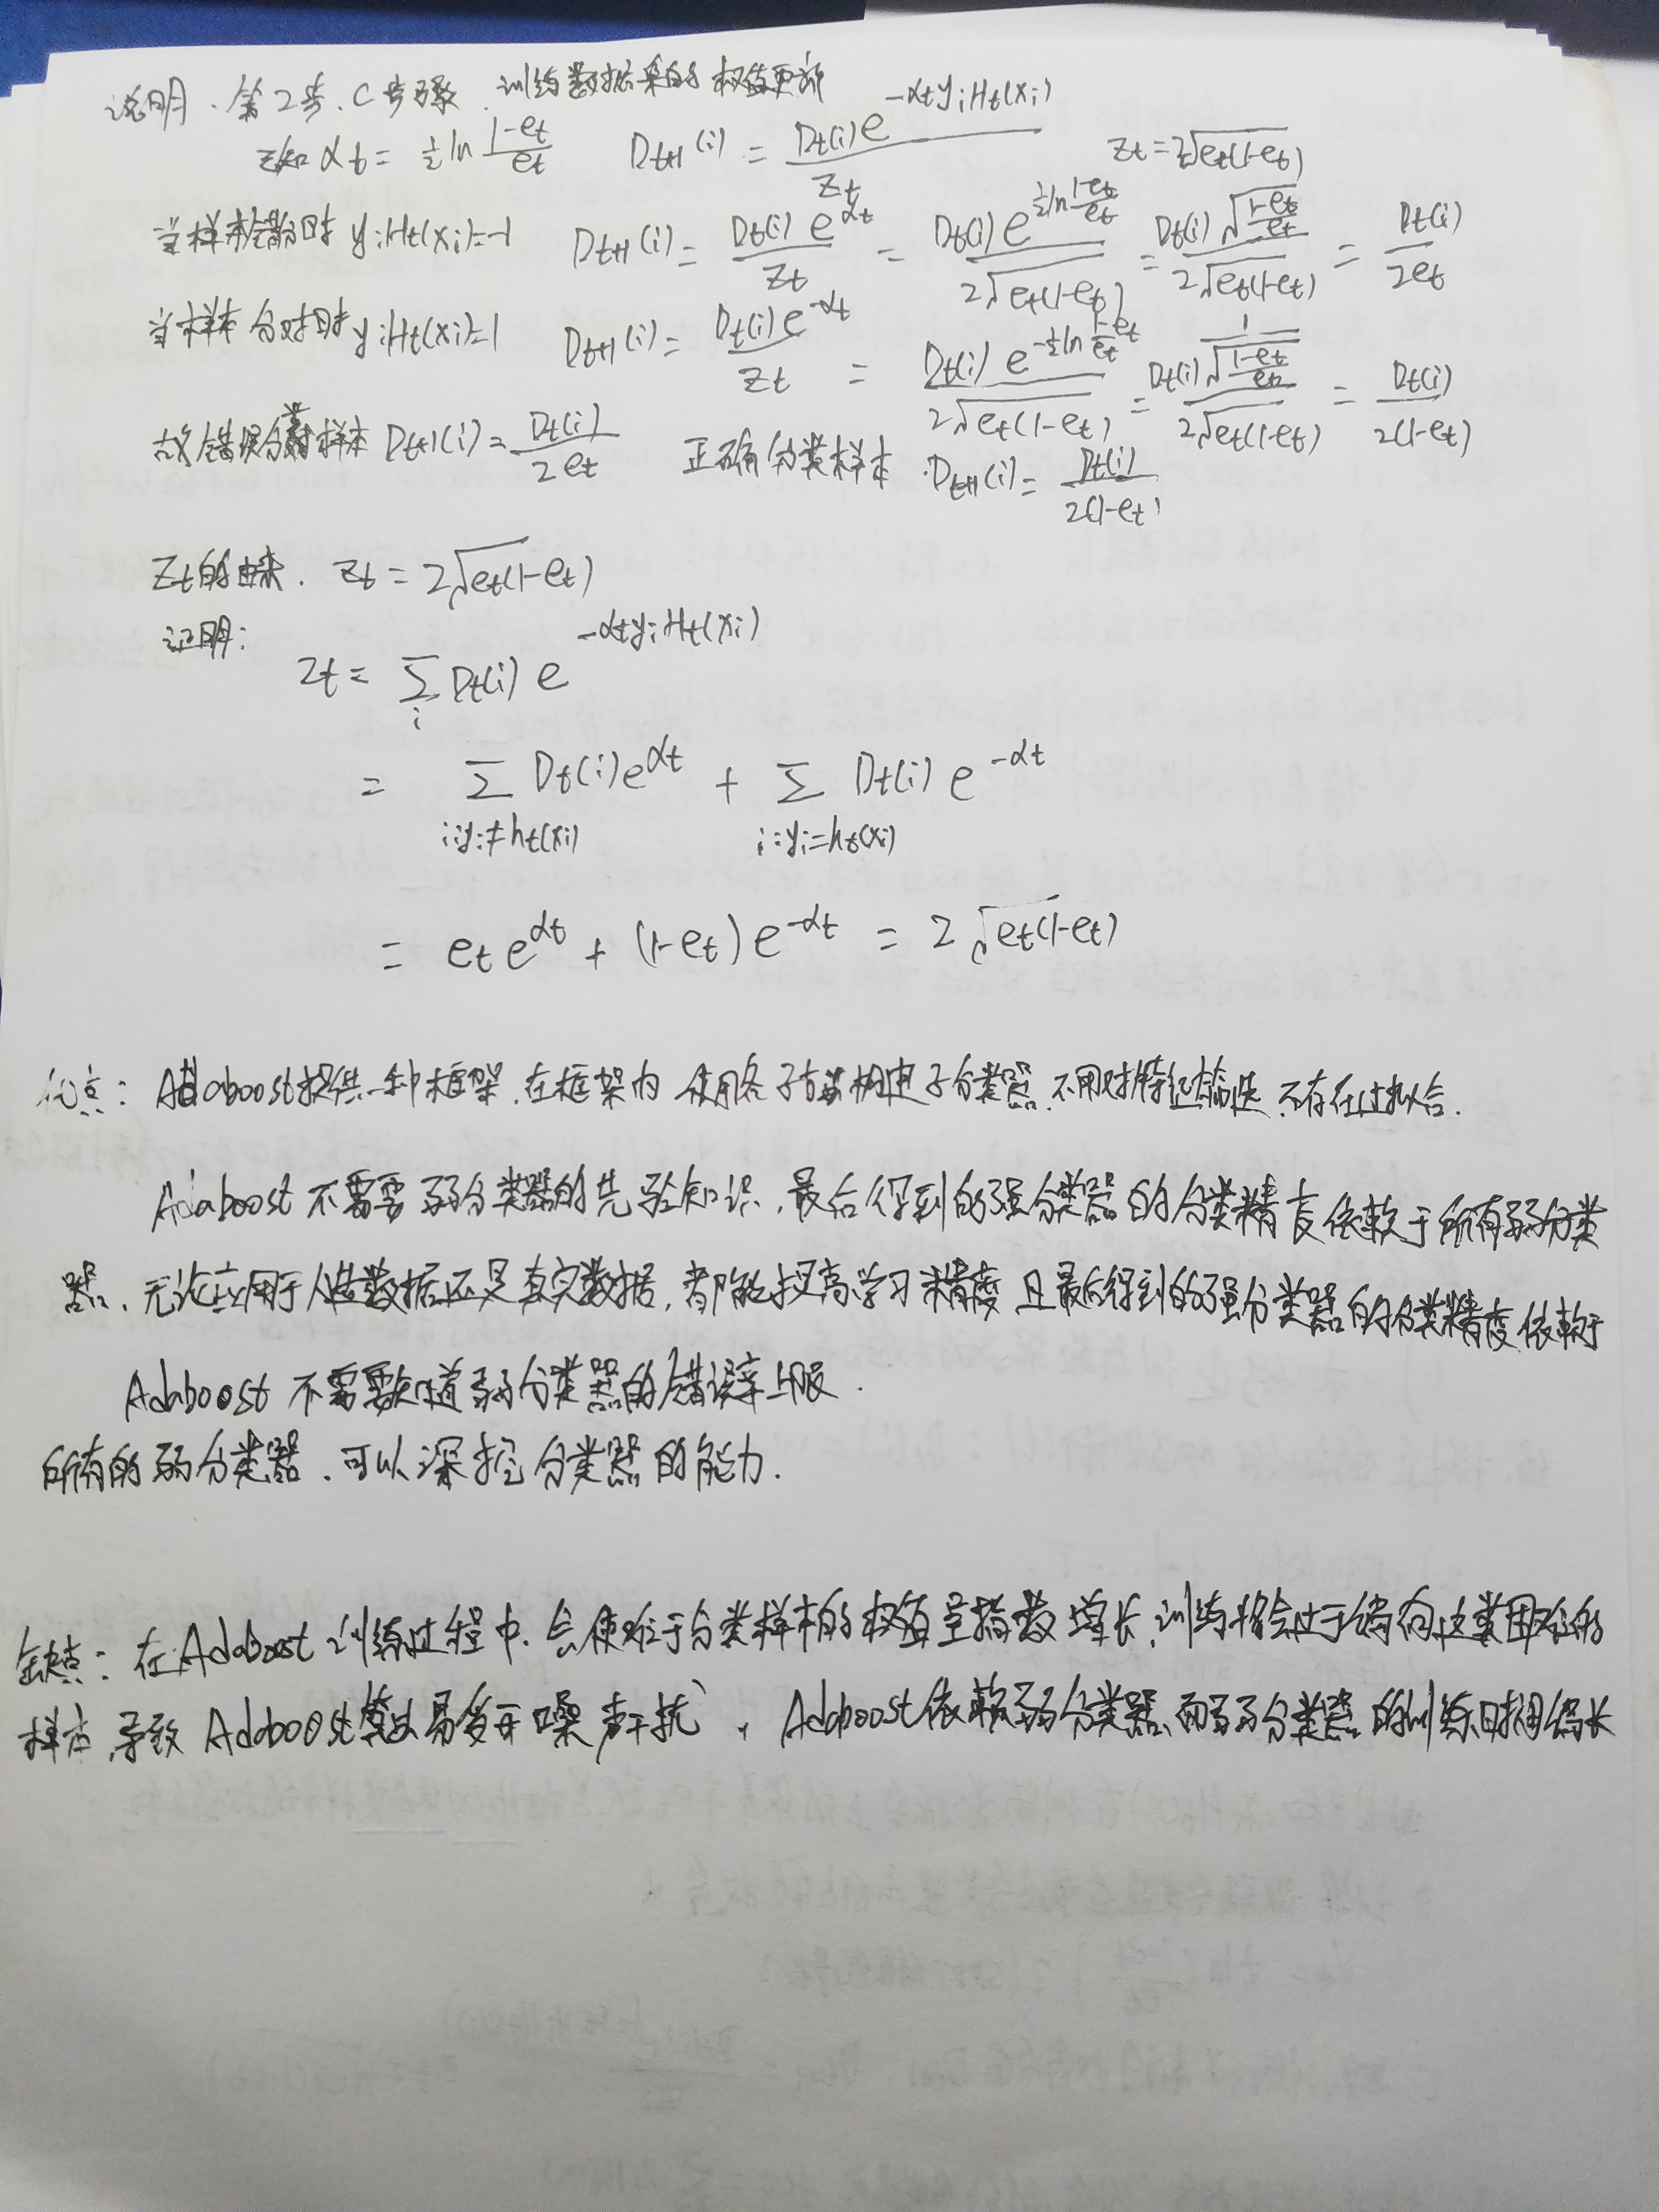 说明、第2步、C步骤、训练数据集的权值更新
已知 αt = ½ ln (1-et)/et   Dt+1(i) = Dt(i)e^(-αt yi Ht(xi)) / Zt   Zt = 2√(et(1-et))
当样本错分时 yiHt(xi)=-1   Dt+1(i) = Dt(i) e^αt / Zt = Dt(i) e^(½ ln (1-et)/et) / 2√(et(1-et)) = Dt(i) √((1-et)/et) / 2√(et(1-et)) = Dt(i) / 2et
当样本分对时 yiHt(xi)=1   Dt+1(i) = Dt(i) e^-αt / Zt = Dt(i) e^(-½ ln (1-et)/et) / 2√(et(1-et)) = Dt(i) 1/√((1-et)/et) / 2√(et(1-et)) = Dt(i) / 2(1-et)
故错误分类样本 Dt+1(i) = Dt(i) / 2et   正确分类样本 Dt+1(i) = Dt(i) / 2(1-et)
Zt的由来. Zt = 2√(et(1-et))
证明:
Zt = Σi Dt(i) e^(-αt yi Ht(xi))
= Σ Dt(i) e^αt + Σ Dt(i) e^-αt
i:yi≠ht(xi)   i:yi=ht(xi)
= et e^αt + (1-et) e^-αt = 2√(et(1-et))
优点: Adaboost提供一种框架,在框架内 使用各子方法构建子分类器,不用对特征筛选 不存在过拟合.
Adaboost 不需要弱分类器的先验知识,最后得到的强分类器的分类精度依赖于所有弱分类
器、无论应用于人造数据还是真实数据,都能提高学习精度 且最后得到的强分类器的分类精度依赖于
Adaboost 不需要知道弱分类器的错误率上限.
所有的弱分类器、可以深挖分类器的能力.
缺点: 在Adaboost训练过程中、会使难于分类样本的权值呈指数增长,训练将会过于偏向这类困难的
样本,导致Adaboost算法易受开噪声干扰、Adaboost依赖弱分类器,而弱分类器的训练时间偏长